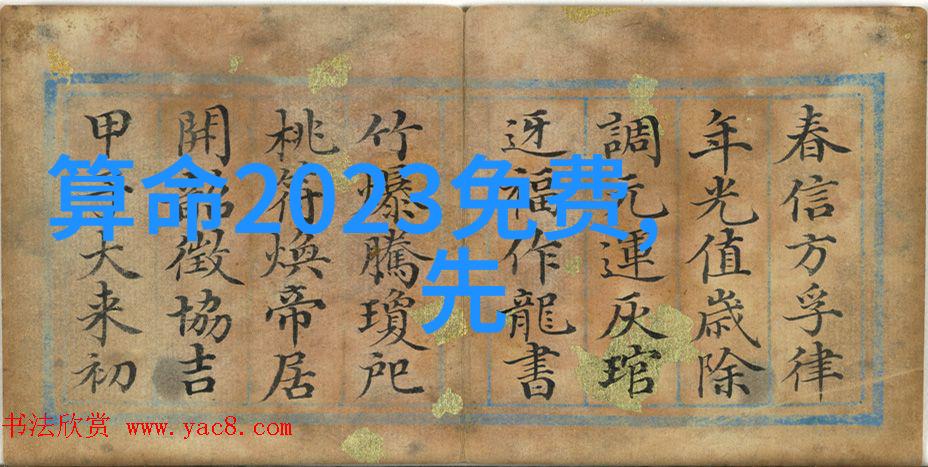 春信方孚律
年光值歲除
調元運灰琯
迓福作龍書
竹爆騰瓊戺
桃符煥帝居
開徵協吉
甲大来初
算命2023免费,
先
书法欣赏 www.yac8.com